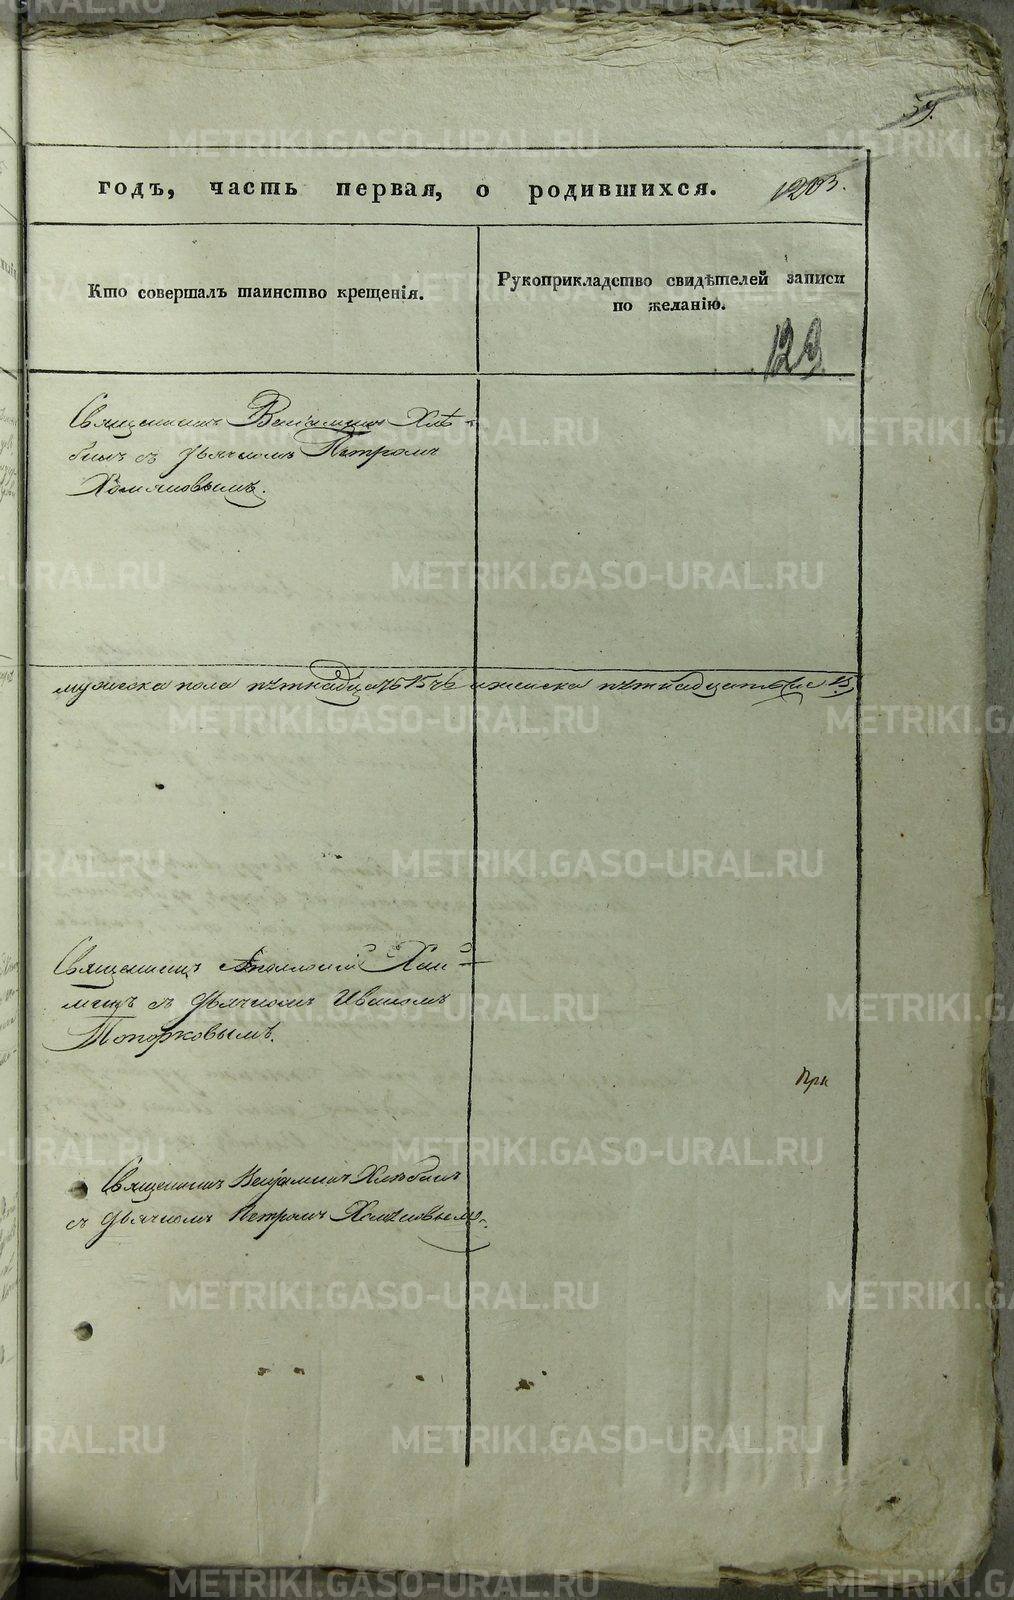 39.
годъ, часть первая, о родившихся. 1203.
Кто совершалъ таинство крещенія.
Рукоприкладство свидѣтелей записи
по желанію.
123
Священникъ Веніаминъ Хлѣ-
бинъ съ дьячкомъ Петромъ
Хомяковымъ.
мужеска пола пѣтнадцать 15ть и женска пѣтнадцать же 15
Священникъ Аполлоній Хан-
съ дьячкомъ Иваномъ
Топорковымъ.
При
Священникъ Веніаминъ Хлѣбинъ
съ дьячкомъ Петромъ Хомяковымъ.
METRIKI.GASO-URAL.RU